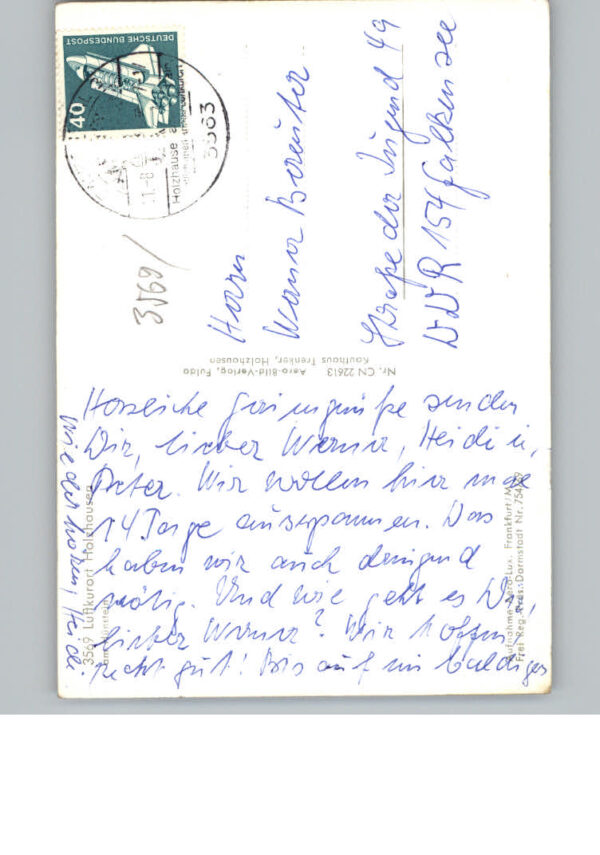 Herzliche Feriengrüße senden
Dir, lieber Werner, Heidi u.
Peter. Wir wollen hier mal
14 Tage ausspannen. Das
haben wir auch dringend
nötig. Und wie geht es Dir,
lieber Werner? Wir hoffen
recht gut! Bis auf ein baldiges
Wiederhören, Heidi.
Herrn
Werner
Straße der Jugend 49
DDR 154 Falkensee
3569/
DEUTSCHE BUNDESPOST
40
Holzhause
3563
Nr. CN 22613 Aero-Bild-Verlag, Fulda
Kaufhaus Trenker, Holzhausen
3569 Luftkurort Holzhausen
Aufnahme: Aero-Lux, Frankfurt/M.
Frei Reg.-Präs. Darmstadt Nr.